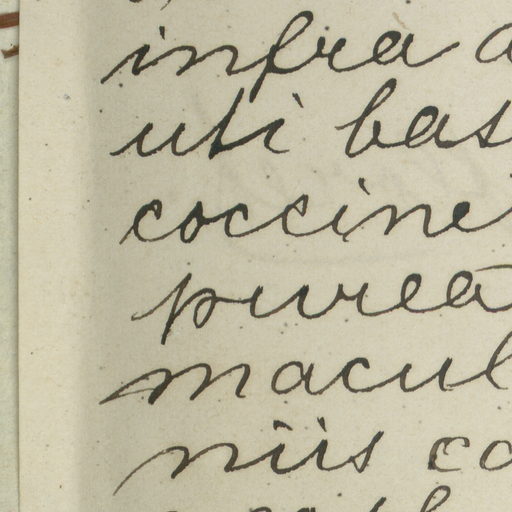 infra a
uti bas
coccine
purea
macul
niis co